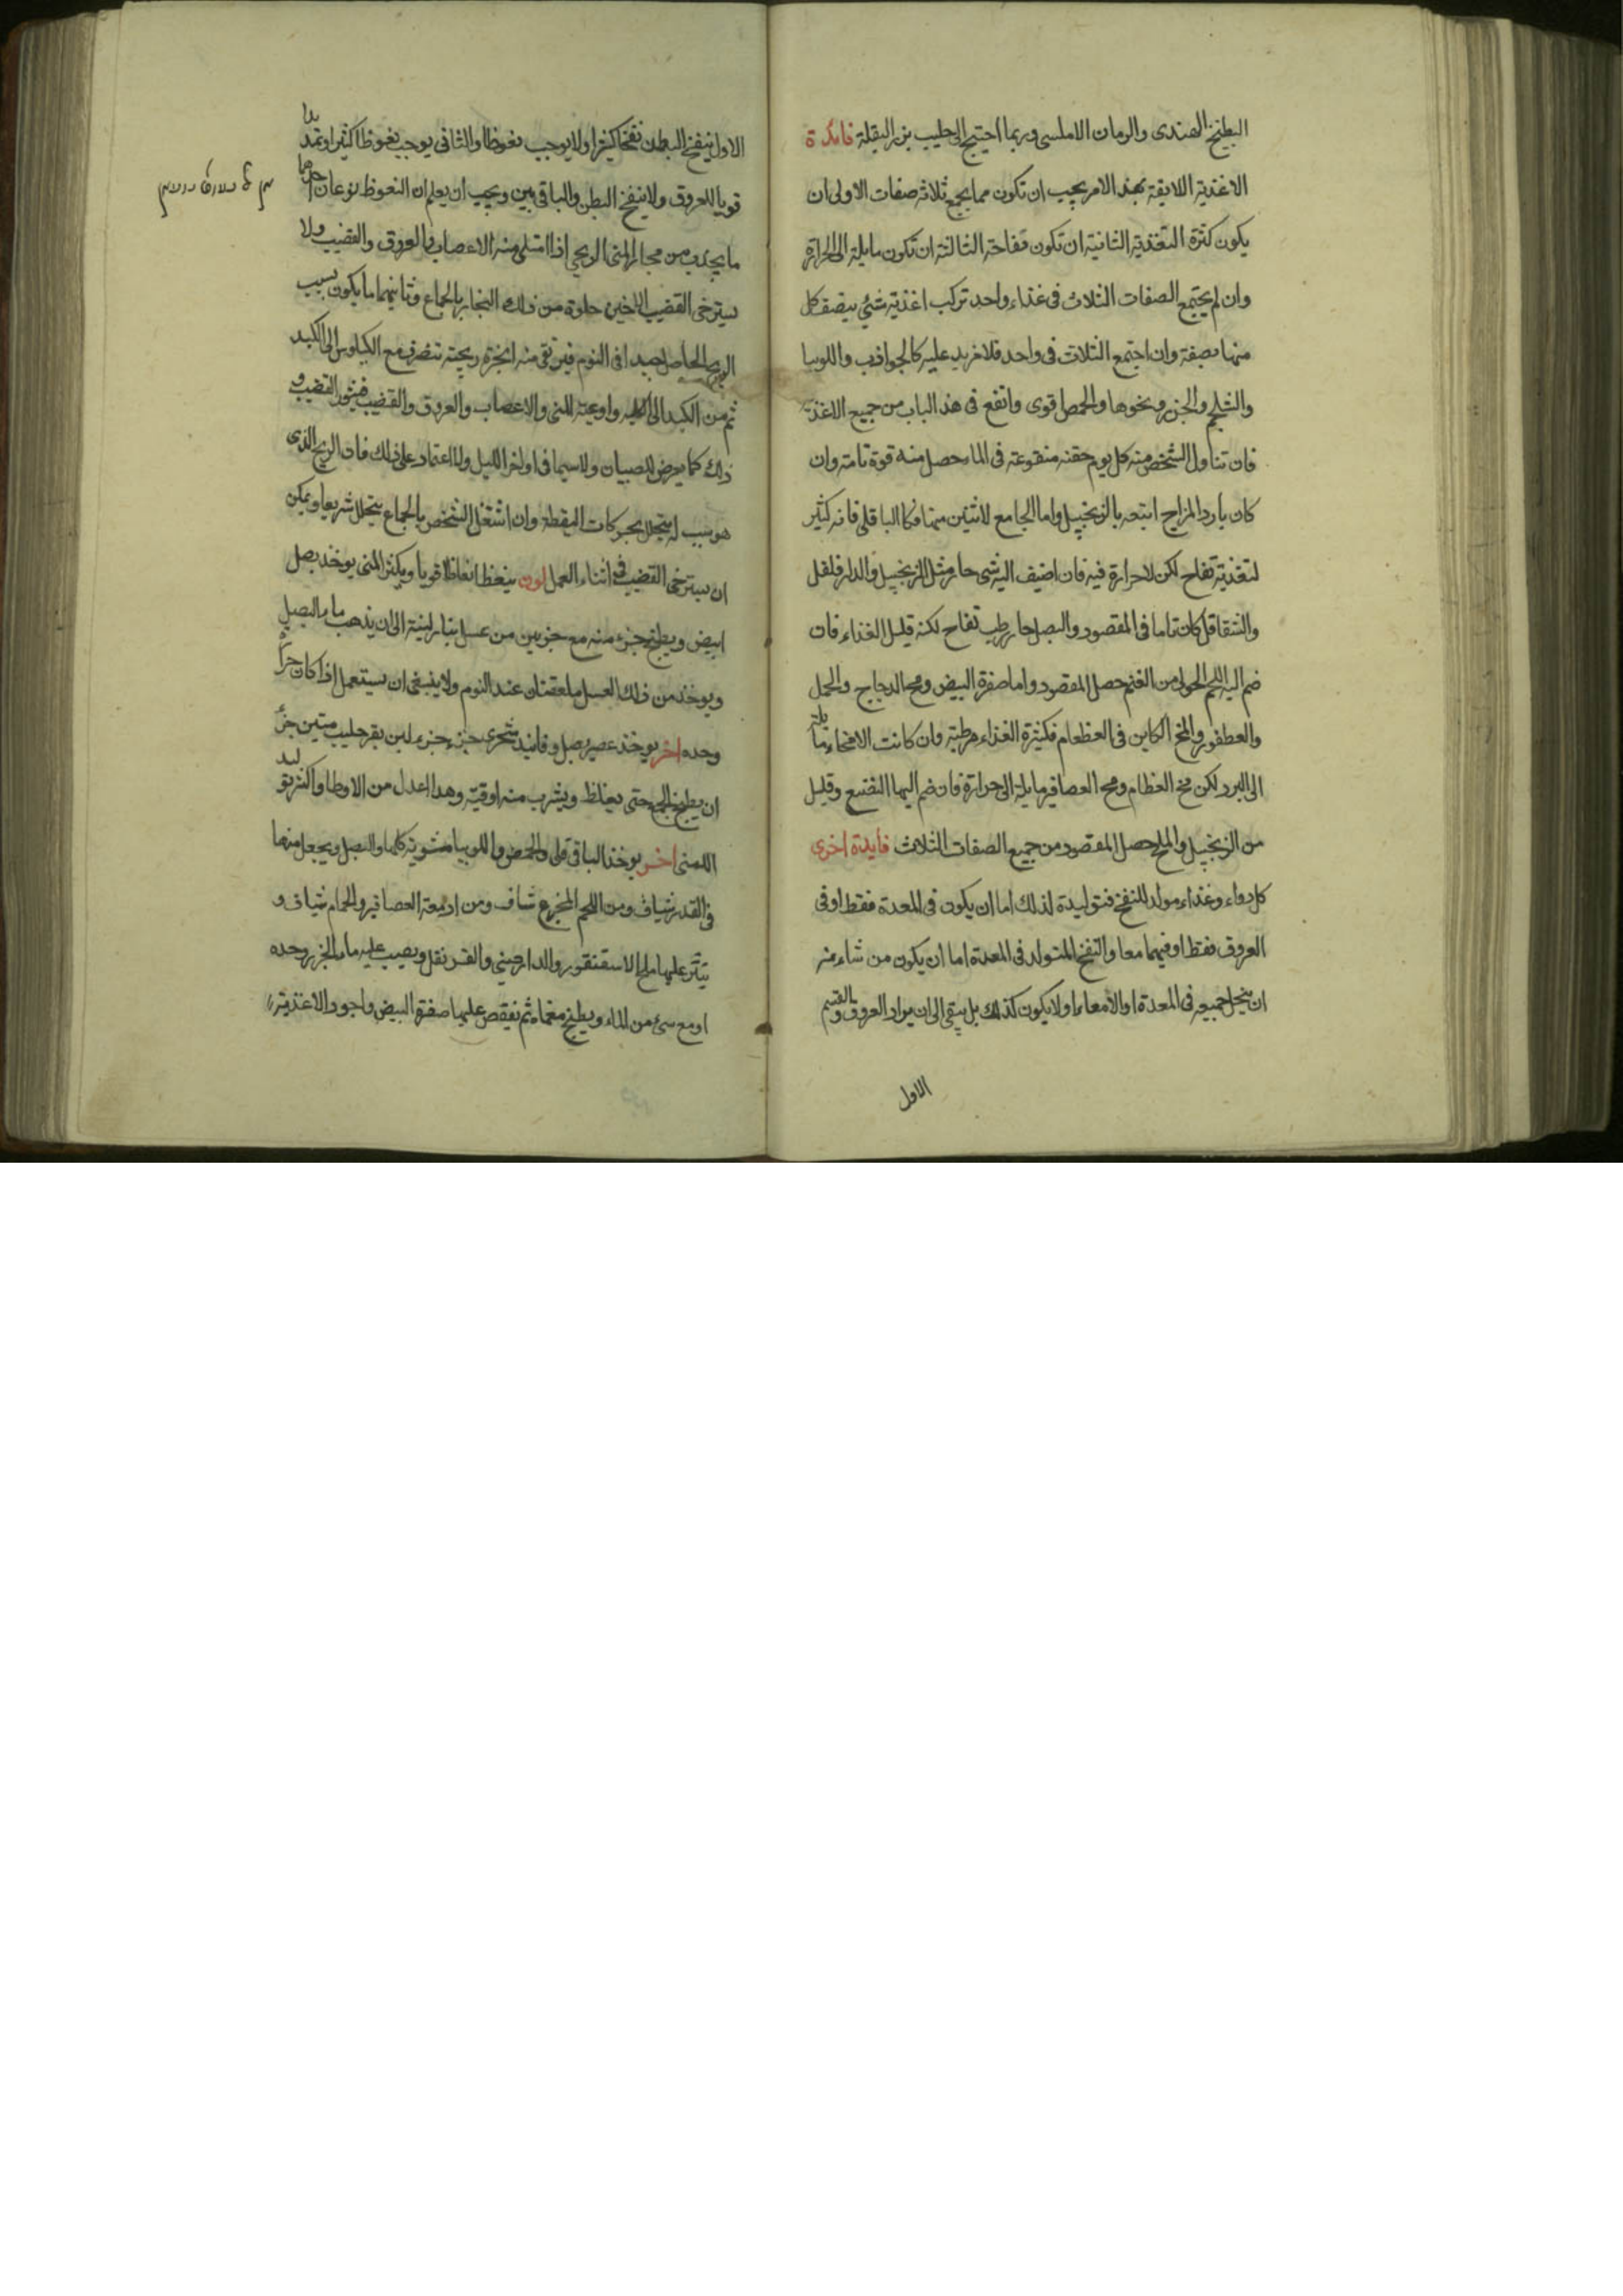 البطيخ الهندى والرمان الامليسى وربما احتيج الى حليب بزر البقلة فائدة
الاغذية اللايقة بهذ الامر يجب ان تكون مما يجمع ثلاثة صفات الاولى ان
يكون كثرة التغذية الثانية ان تكون نفاخة الثالثة ان تكون مايلة الى الحرارة
وان لم يجتمع الصفات الثلاث فى غذاء واحد تركب اغذية شئي يتصف كل
منها بصفة وان اجتمع الثلاث فى واحد فلا مزيد عليه كالجواذب واللوبيا
والشلجم والجزر ونحوها والحمص اقوى وانفع فى هذ الباب من جميع الاغذية
فان تناول الشخص منه كل يوم حفنه منقوعة فى الماء حصل منه قوة تامة وان
كان بارد المزاج اتبعه بالزنجبيل واما الجامع لاثنين منها فكالباقلى فانه كثير
لتغذية نفاخ لكن لا حرارة فيه فان اضيف اليه شى حار مثل الزنجبيل والدار فلفل
والشقاقل كان تاما فى المقصود والبصل حار رطب نفاخ لكنه قليل الغذاء فان
ضم اليه اللحم الحولى من الغنم حصل المقصود واما صفرة البيض ومح الدجاج والحمل
والعطفور والمخ الكاين فى العظعام فكثيرة الغذاء مرطبة وان كانت الامخاء مايلة
الى البرد لكن مخ العظام ومح العصافير مايلة الى حرارة فان ضم اليها النعنع وقليل
من الزنجبيل والملح حصل المقصود من جميع الصفات الثلاث فايدة اخرى
كل دواء وغذاء مولد للنفخ فتوليدة لذلك اما ان يكون فى المعدة فقط او فى
العروق فقط او فيهما معا والنفخ المتولد فى المعدة اما ان يكون من شاءنه
ان ينحل جميعه فى المعدة او الامعاء او لا يكون كذلك بل يبقى الى ان يراد العروق والقسم
الاول
الاول ينفخ البطن نفخا كثيرا ولا يوجب نعوظا والثانى يوجب نعوظا كثيرا وتمددا
قويا للعروق ولا ينفخ البطن والباقى بين ويجب ان يعلم ان النعوظ نوعان احدهما
ما يحدث من مجار المنى الريحي اذا امتلى منه الاعصاب والعروق والقضيب ولا
يسترخى القضيب الا حين خلوة من ذلك البخار بالجماع وثانيهما ما يكون بسبب
الريح الحاصل جيدا فى النوم فيرتقى منه ابخرة ريحية تنصرف مع الكيلوس الى الكبد
ثم من الكبد الى الكليه واوعية المنى والاعصاب والعروق والقضيب فيثور القضيب و
ذلك كما يعرض للصبيان ولا سيما فى اواخر الليل ولا اعتماد على ذلك فان الريح الذى
هو سبب له يتحلل بحركات اليقظة وان اشتغل الشخص بالجماع يتحلل شريعا ويمكن
ان يسترخى القضيب فى اثناء العمل لون ينعظ انعاظا قويا ويكثر المنى يوخذ بصل
ابيض ويطبخ جزء منه مع جزيين من عسل بنار لينة الى ان يذهب ماء البصل
ويوخذ من ذلك العسل ملعقتان عند النوم ولا ينبغى ان يستعمل اذا كان حرا
وحده اخر يوخذ عصير بصل وفانيذ شحرى جزء جزء لبن بقر حليب متين جزء
ان يطبخ الجميع حتى يغلظ ويشرب منه اوقية وهدا اعدل من الاول وا كثر توليد
اللمنى اخر يوخذ الباقلى والحمص واللوبيا مشوية كلها والبصل ويجعل منها
فى القدر شياف ومن اللحم المخرع ساف ومن ادمغة العصافير والحمام شياف و
ينثر عليها ملح الاسقنقور والدارجينى والقرنفل ويصب عليه ماء الجزر وحده
او مع شئ من الماء ويطبخ مغماة ثم نفقص عليها صفرة البيض واجود الاغذية